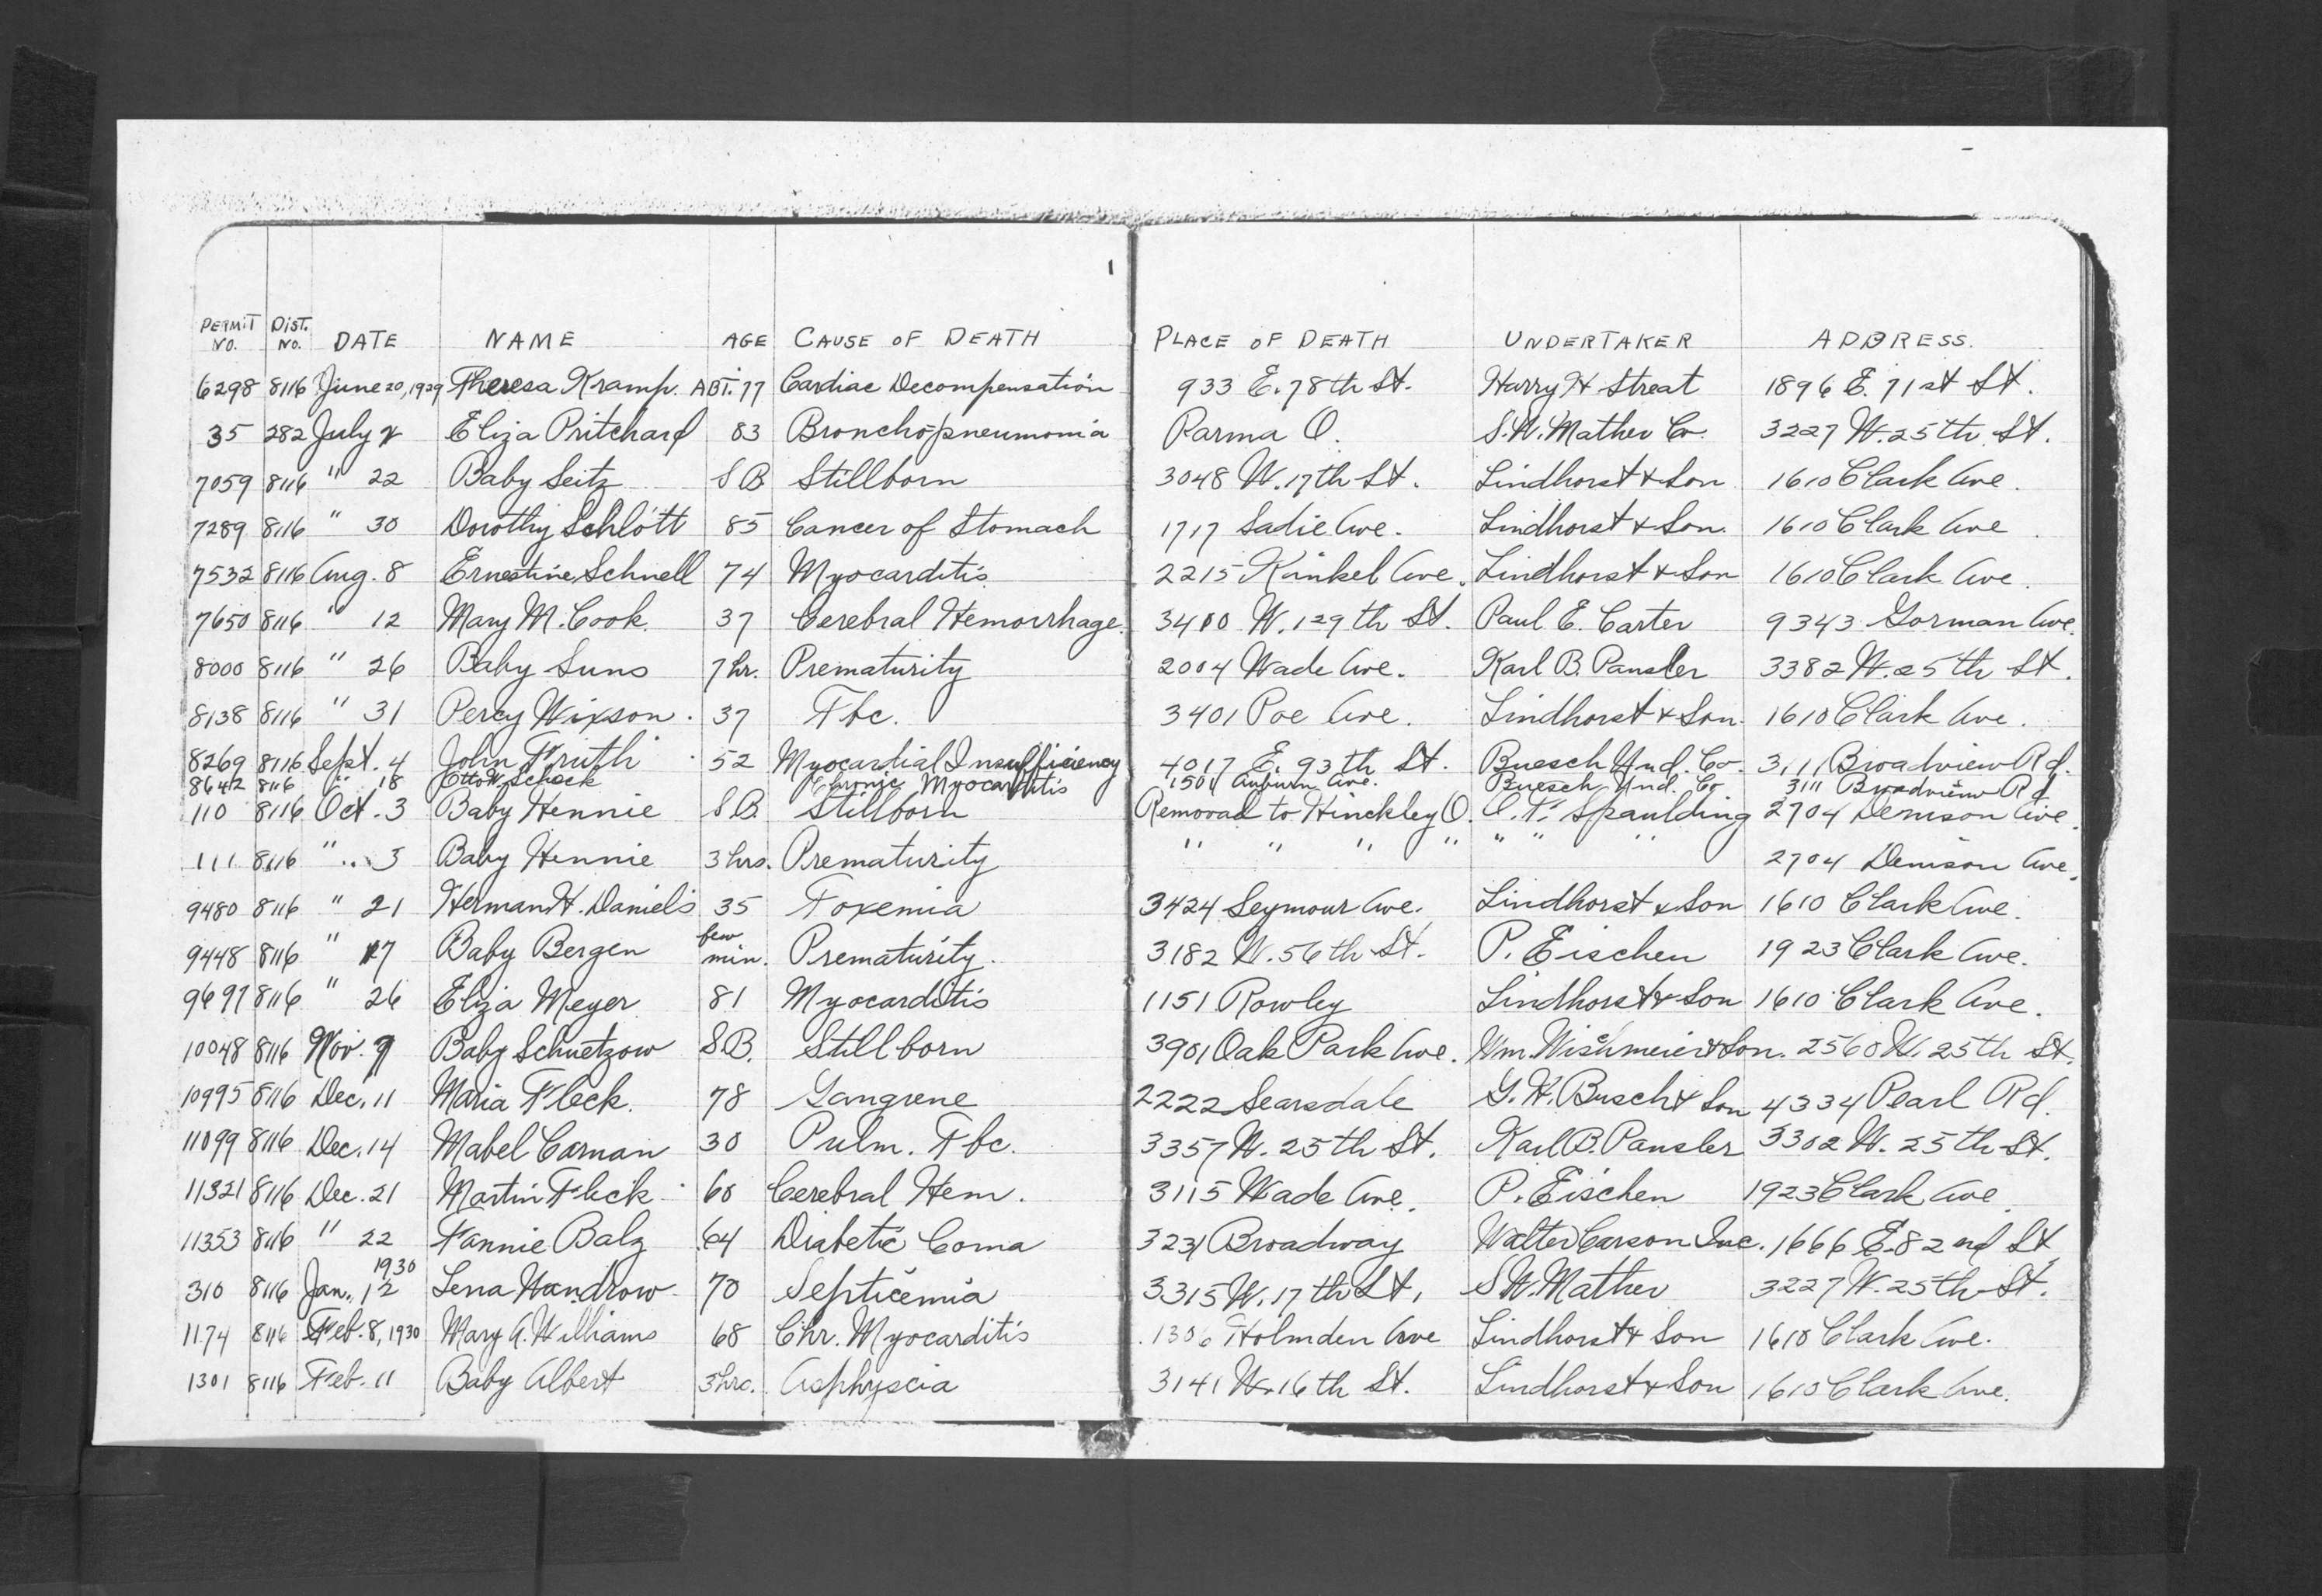 PERMIT NO. DIST. NO. DATE NAME AGE CAUSE OF DEATH PLACE OF DEATH UNDERTAKER ADDRESS.
6298 8116 June 20, 1929 Theresa Kramp. ABT. 77 Cardiac Decompensation 933 E. 78th St. Harry H Streat 1896 E. 71st St.
35 282 July 2 Eliza Pritchard 83 Bronchopneumonia Parma O. S.W. Mather Co. 3227 W. 25th St.
7059 8116 " 22 Baby Seitz S B Stillborn 3048 W. 17th St. Lindhorst & Son 1610 Clark Ave.
7289 8116 " 30 Dorothy Schlott 85 Cancer of Stomach 1717 Sadie Ave. Lindhorst & Son. 1610 Clark Ave.
7532 8116 Aug. 8 Ernestine Schnell 74 Myocarditis 2215 Kinkel Ave. Lindhorst & Son 1610 Clark Ave.
7650 8116 " 12 Mary M. Cook 37 Cerebral Hemorrhage. 3410 W. 129th St. Paul E. Carter 9343 Gorman Ave.
8000 8116 " 26 Baby Suns 7 hr. Prematurity 2004 Wade Ave. Karl B. Pansler 3382 W. 25th St.
8138 8116 " 31 Percy Wixson. 37 Tbc. 3401 Poe Ave. Lindhorst & Son. 1610 Clark Ave.
8269 8116 Sept. 4 John Fruth 52 Myocardial Insufficiency 4017 E. 93th St. Buesch Und. Co. 3111 Broadview Rd.
8642 8116 " 18 Otto W. Schock Chronic Myocarditis 1501 Auburn Ave. Buesch Und. Co 3111 Broadview Rd
110 8116 Oct. 3 Baby Hennie S.B. Stillborn Removal to Hinckley O. Spaulding 2704 Denison Ave.
111 8116 " 3 Baby Hennie 3 hrs. Prematurity " " " " " " " 2704 Denison Ave.
9480 8116 " 21 Herman H. Daniels 35 Toxemia 3424 Seymour Ave. Lindhorst & Son 1610 Clark Ave.
9448 8116 " 17 Baby Bergen few min. Prematurity. 3182 W. 56th St. P. Eischen 1923 Clark Ave.
9697 8116 " 26 Eliza Meyer 81 Myocarditis 1151 Rowley Lindhorst & Son 1610 Clark Ave.
10048 8116 Nov. 9 Baby Schuetzow S.B. Stillborn 3901 Oak Park Ave. Wm. Wishmeier & Son. 2560 W. 25th St.
10995 8116 Dec. 11 Maria Fleck. 78 Gangrene 2222 Searsdale G.H. Busch & Son 4334 Pearl Rd.
11099 8116 Dec. 14 Mabel Carnan 30 Pulm. Tbc. 3357 W. 25th St. Karl B. Pansler 3302 W. 25th St.
11321 8116 Dec. 21 Martin Fleck 60 Cerebral Hem. 3115 Wade Ave. P. Eischen 1923 Clark Ave.
11353 8116 " 22 Fannie Balz 64 Diabetic Coma 3231 Broadway Walter Carson Inc. 1666 E. 82nd St
310 8116 Jan. 12 1930 Lena Wandrow 70 Septicemia 3315 W. 17th St. S W. Mather 3227 W. 25th St.
1174 8116 Feb. 8, 1930 Mary A. Williams 68 Chr. Myocarditis 1306 Holmden Ave Lindhorst & Son 1610 Clark Ave.
1301 8116 Feb. 11 Baby Albert 3 hrs. Asphyxia 3141 W. 16th St. Lindhorst & Son 1610 Clark Ave.